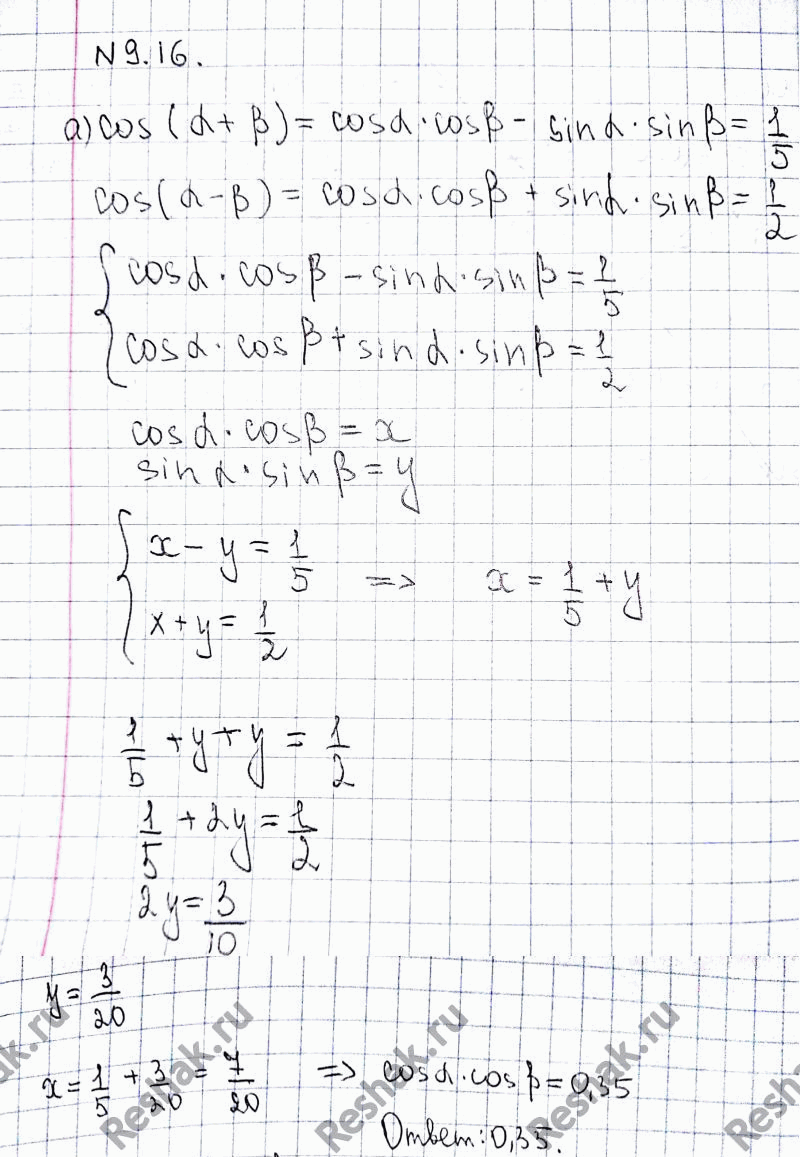 N 9.16.
а) cos(α + β) = cosα · cosβ - sinα · sinβ = 1/5
cos(α - β) = cosα · cosβ + sinα · sinβ = 1/2
{ cosα · cosβ - sinα · sinβ = 1/5
cosα · cosβ + sinα · sinβ = 1/2
cosα · cosβ = x
sinα · sinβ = y
{ x - y = 1/5 => x = 1/5 + y
x + y = 1/2
1/5 + y + y = 1/2
1/5 + 2y = 1/2
2y = 3/10
y = 3/20
x = 1/5 + 3/20 = 7/20 => cosα · cosβ = 0,35
Ответ: 0,35.
Reshak.ru
Reshak.ru
Reshak.ru